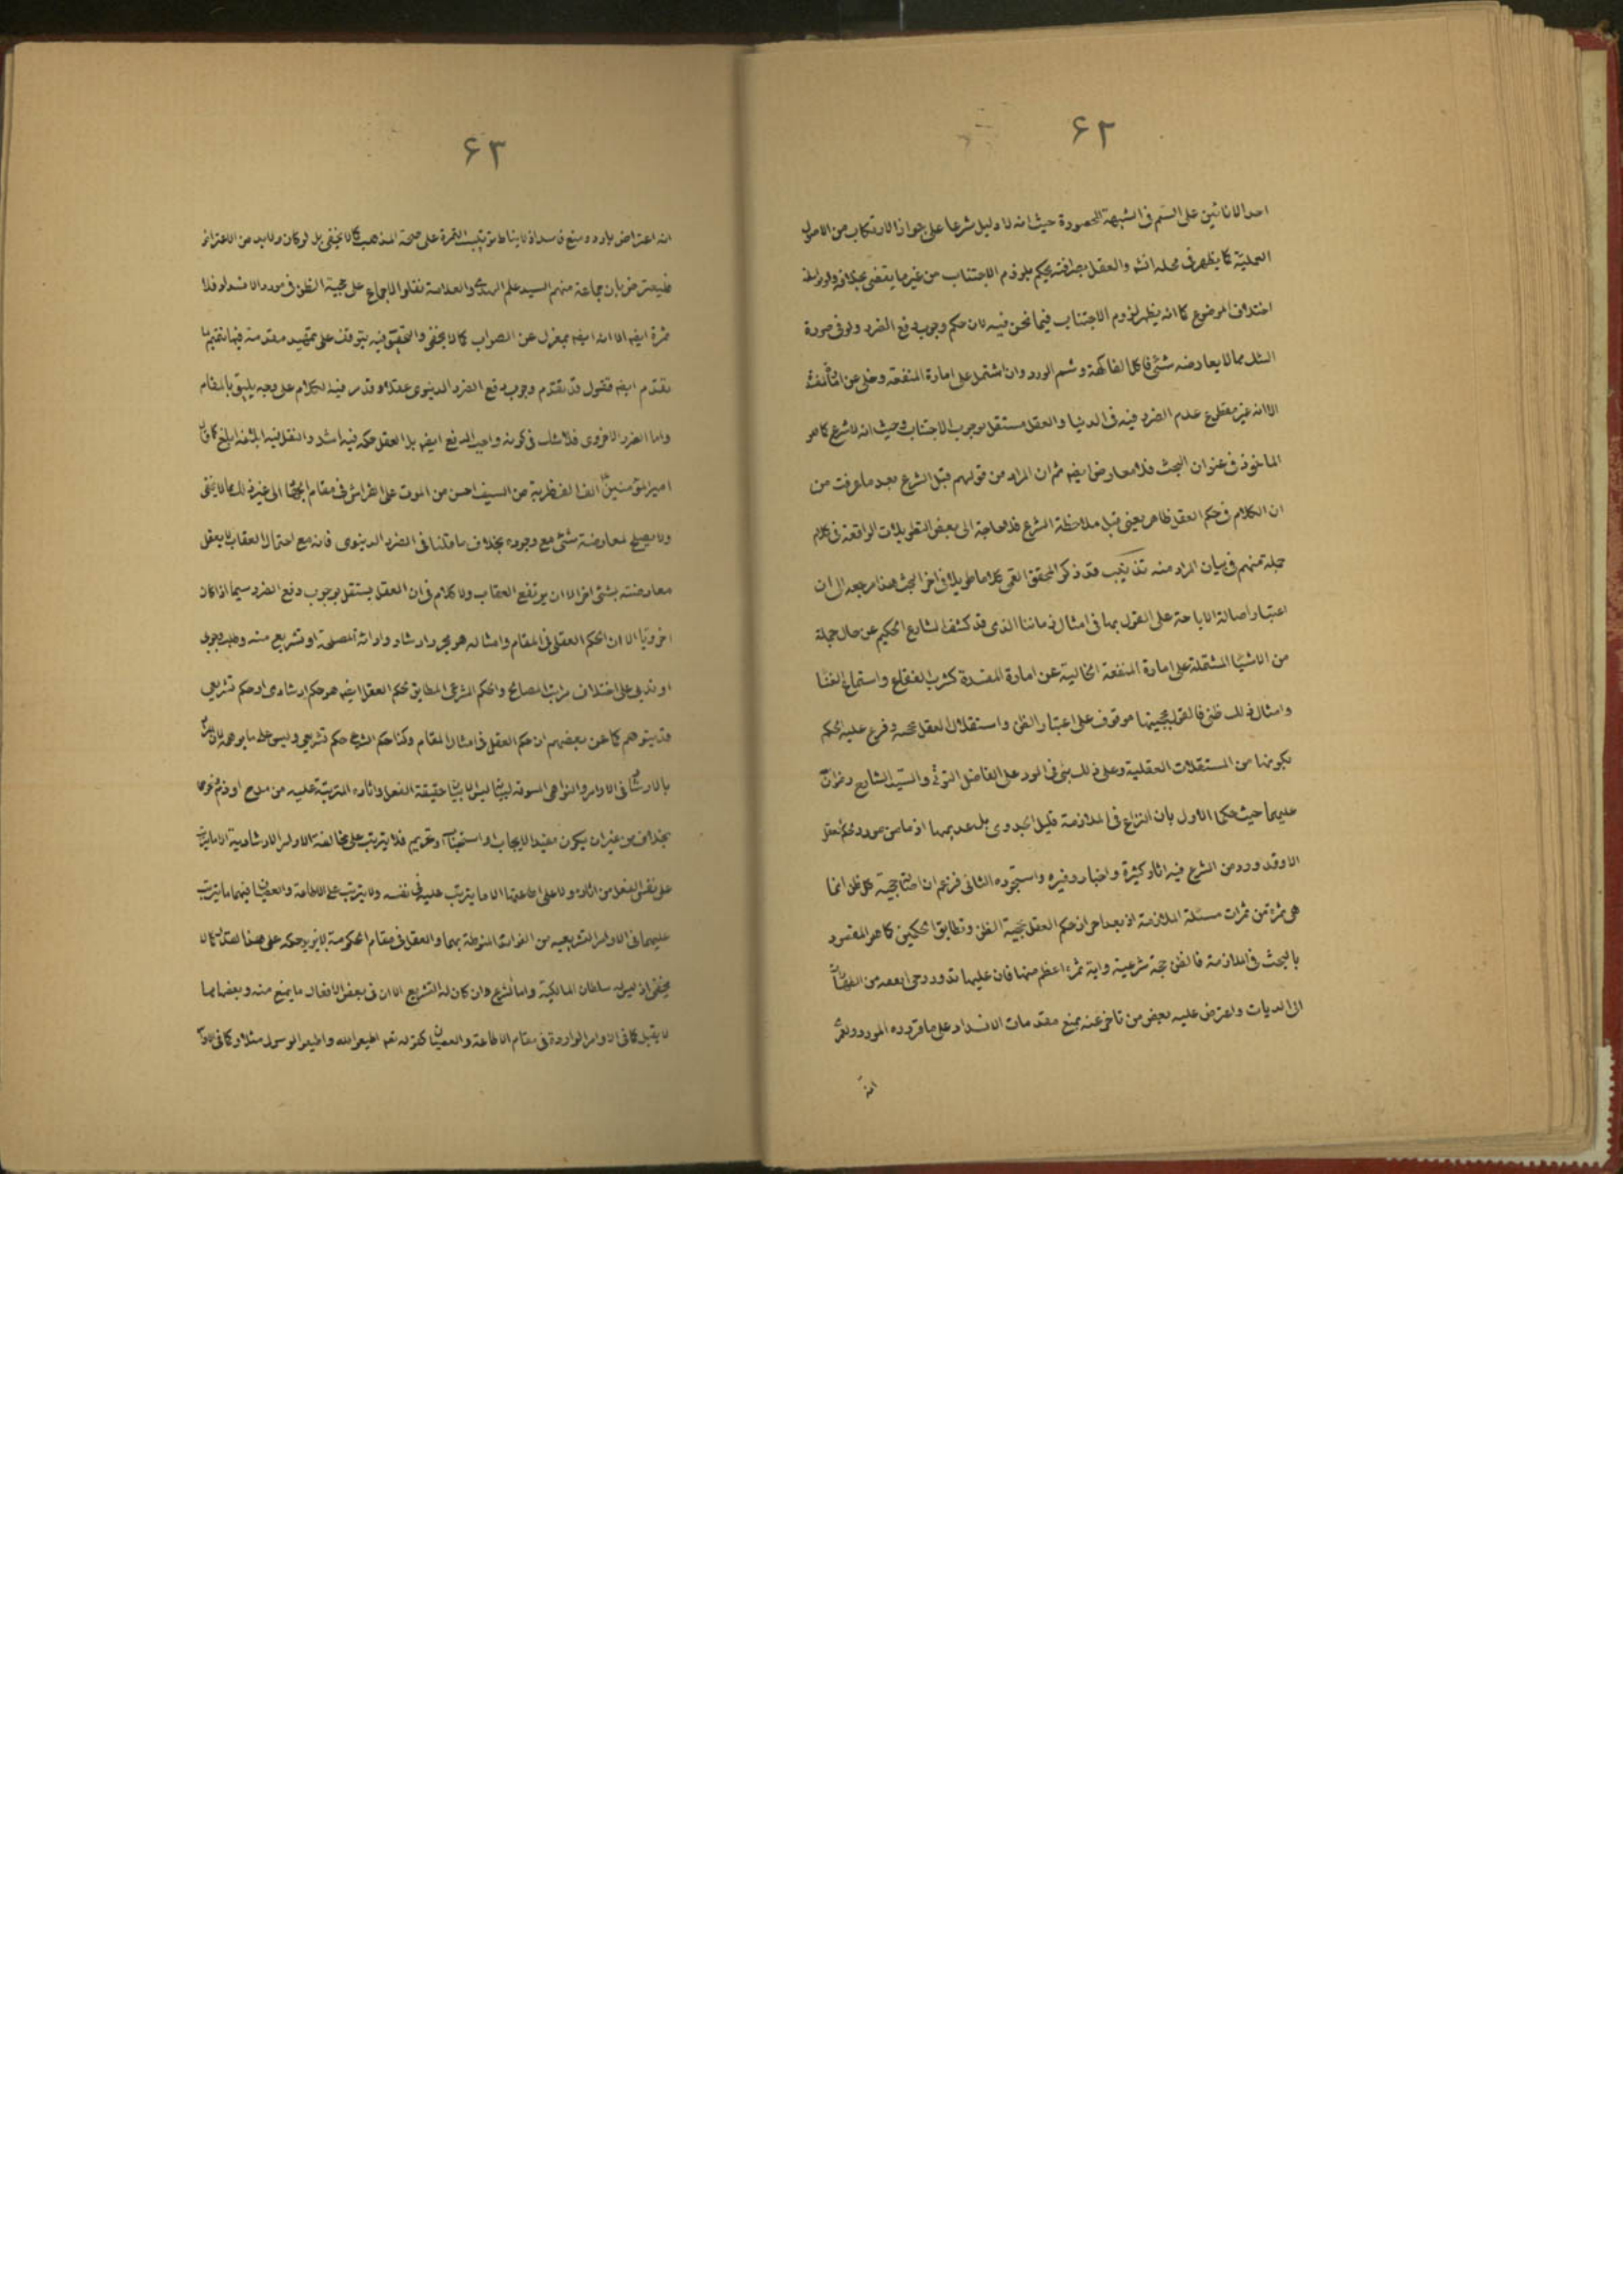 ۶۲
احد الانائين على السّم فى الشبهة المحصورة حيث انه لا دليل شرعا على جواز الارتكاب من الاصول
العمليّة كما يظهر فى محله انشه والعقل بصرافته يحكم بلزوم الاجتناب من غير ما يقضى بخلافه ولو بواسطة
اختلاف الموضوع كما انه يظهر لزوم الاجتناب فيما نحن فيه لان حكم وجوب دفع الضرر ولو فى صورة
الشك مما لا يعارضه شئ فاكل الفاكهة وشم الورد وان اشتمل على امارة المنفعة وخلى عن
الا انه غير مقطوع عدم الضرر فيه فى الدنيا والعقل مستقل بوجوب الاجتناب وحيث انه لا شرع كما هو
الماخوذ فى عنوان البحث فلا معارض ايضه ثم ان المراد من قولهم قبل الشرع بعد ما عرفت من
ان الكلام فى حكم العقل ظاهر يعنى قبل ملاحظة الشرع فلا حاجة الى بعض التطويلات الواقعة فى كلام
جملة منهم فى بيان المراد منه تذنيب قد ذكر المحقق القمى كلاما طويلا فى اخر البحث هذا مرجعه الى ان
اعتبار اصالة الاباحة على القول بها فى امثال زماننا الذى قد كشف الشارع الحكيم عن حال جملة
من الاشيا المشتملة على امارة المنفعة الخالية عن امارة المفسدة كشرب الفقاع واستماع الغنا
وامثال ذلك ظنى فالقول بحجيتها موقوف على اعتبار الظن واستقلال العقل بحجيته وفرع عليه الحكم
بكونها من المستقلات العقلية وعلى ذلك بنى فى الورد على الفاضل التونى والسيّد الشارح
عليهما حيث حكما الاول بان النزاع فى الملازمة قليل الجدوى بل عديمها اذ ما من مورد حكم العقل
الا وقد ورد من الشرع فيه اثار كثيرة واخبار وفيره واستجوده الثانى فزعم ان حجية كل ظن انما
هى ثمرة من ثمرات مسئلة الملازمة اذ بعد احراز حكم العقل بحجية الظن وتطابق الحكمين كما هو المقصود
بالبحث فى الملازمة فالظن حجة شرعية واية ثمرة اعظم منها فان عليها تدور رحى الفقه من
الى الديات واعترض عليه بعض من تاخر عنه بمنع مقدمات الانسداد على ما قرره المورد
انه
۶۳
انه اعتراض بارد ومنع فاسد اذ لا يناط ترتيب الثمرة على صحة المذهب كما لا يخفى بل لو كان ولابد من الاعتراض
فليعترض بان جماعة منهم السيد علم الهدى والعلامة نقلوا الاجماع على حجية الظن فى مورد الانسداد فلا
ثمرة ايضه الا انه ايضه بمعزل عن الصواب كما لا يخفى والتحقيق فيه يتوقف على تمهيد مقدمة فيها
تقدّم ايضه فنقول قد تقدّم وجوب دفع الضرر الدنيوى عقلا وقد مر فيه الكلام على وجه يليق بالمقام
واما الضرر الاخروى فلا شك فى كونه واجب الدفع ايضه بل العقل حكمه فيه اشد والنقل فيه ابلغ كما قال
اميرالمؤمنين الف الف ضربة من السيف احسن من الموت على الفراش فى مقام الى غير ذلك مما لا يخفى
ولا يصلح لمعارضة شئ مع وجوده بخلاف ما قلنا فى الضرر الدنيوى فانه مع احتمال العقاب لا يعقل
معارضته بشئ اخر الا ان يرتفع العقاب ولا كلام فى ان العقل يستقل بوجوب دفع الضرر سيما اذا كان
اخرويّا الا ان الحكم العقلى فى المقام وامثاله هو مجرد ارشاد وارائة المصلحة او تشريع منه وطلب وجوبى
او ندبى على اختلاف مراتب المصالح والحكم الشرعى المطابق لحكم العقل ايضه هو حكم ارشادى او حكم تشريعى
قد يتوهم كما عن بعضهم ان حكم العقل فى امثال المقام وكذا حكم الشرع حكم تشريعى وليس على ما يوهمه لان
بالارشاد فى الاوامر والنواهى المسوقة لبيانها ليس الا بيان حقيقة الفعل واثاره المترتبة عليه من مدح او ذم
بخلافه من غير ان يكون مفيدا لايجاب او استحباب او تحريم فلا يترتب على مخالفة الاوامر الارشادية الا ما يترتب
على نفس الفعل من اثاره ولا على اطاعتها الا ما يترتب عليه فى نفسه ولا يترتب على الاطاعة والعصيان فيهما ما يترتب
عليهما فى الاوامر التشريعيه من الفوائد المنوطة بهما والعقل فى مقام الحكومة لا يزيد حكمه على هذا المقدار كما لا
يخفى اذ ليس له سلطان المالكية واما الشرع وان كان له التشريع الا ان فى بعض الافعال ما يمنع منه وبعضها مما
لا يقبل كما فى الاوامر الواردة فى مقام الاطاعة والعصيان كقوله تعه اطيعوا الله واطيعوا الرسول مثلا وكما فى